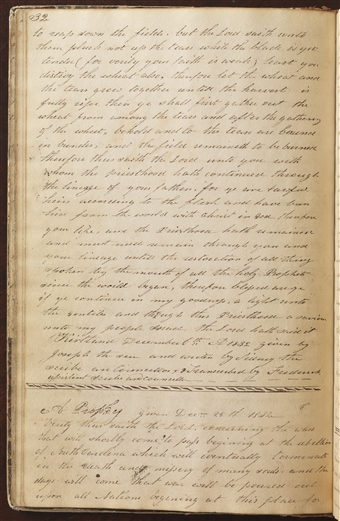 32
to reap down the fields. but the Lord saith unto
them pluck not up the tares while the blade is yet
tender (for verily your faith is weak) lest you
distroy the wheat also, therefore let the wheat and
the tares grow together untill the harvest is
fully ripe then ye shall first gather out the
wheat from among the tares and after the gathering
of the wheat, behold and lo the tares are bound
in bundles, and the field remaineth to be burned
therefore thus saith the Lord unto you with
whom the priesthood hath continued through
the lineage of your fathers for ye are lawful
heirs according to the flesh and have been
hid from the world with Christ in God therefore
your life and the Priesthood hath remained
and must needs remain through you and
your lineage untill the restoration of all things
spoken by the mouth of all the holy Prophets
since the world began, therefore blessed are ye
if ye continue in my goodness, a light unto
the Gentiles and through this Priesthood a saviour
unto my people Israel the Lord hath said it
Kirtland December 6th AD 1832 given by
Joseph the seer and writen by Sidney the
scribe an Councellor & Transcribed by Frederick
assistant scribe and Councellor
A Prophecy given Decm 25th 1832
Verily thus saith the Lord, concerning the wars
that will shortly come to pass beginning at the rebellion
of South Carolina which will eventually terminate
in the death and misery of many souls and the
days will come that war will be poured out
upon all Nations begining at this place for